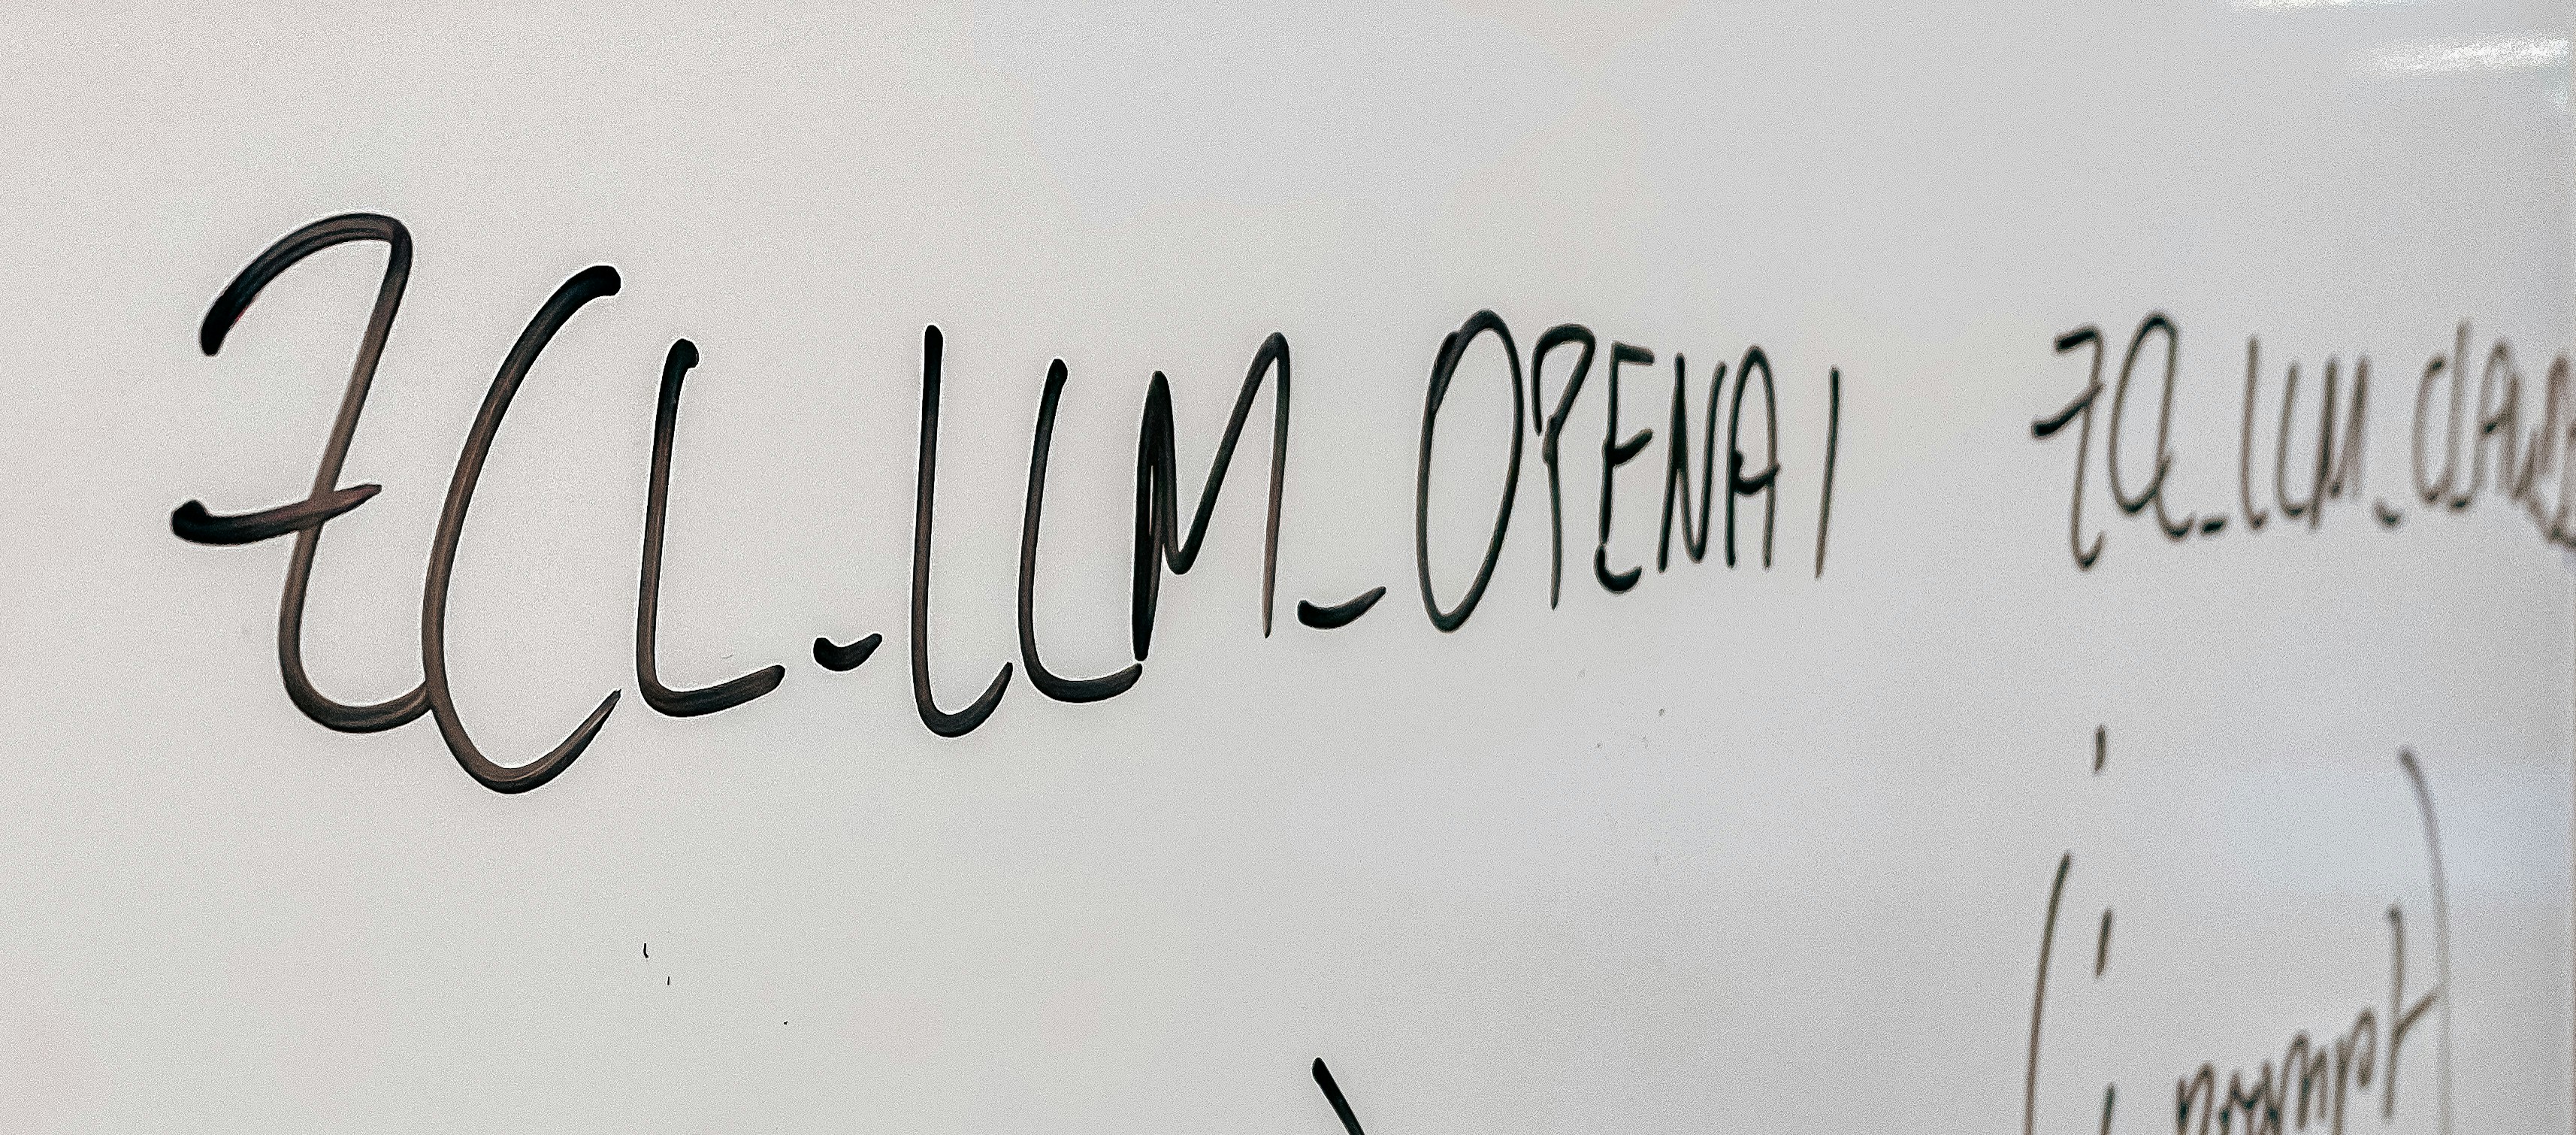 ZCL_LLM_OPENAI ZCL_LLM_CLAUDE
prompt